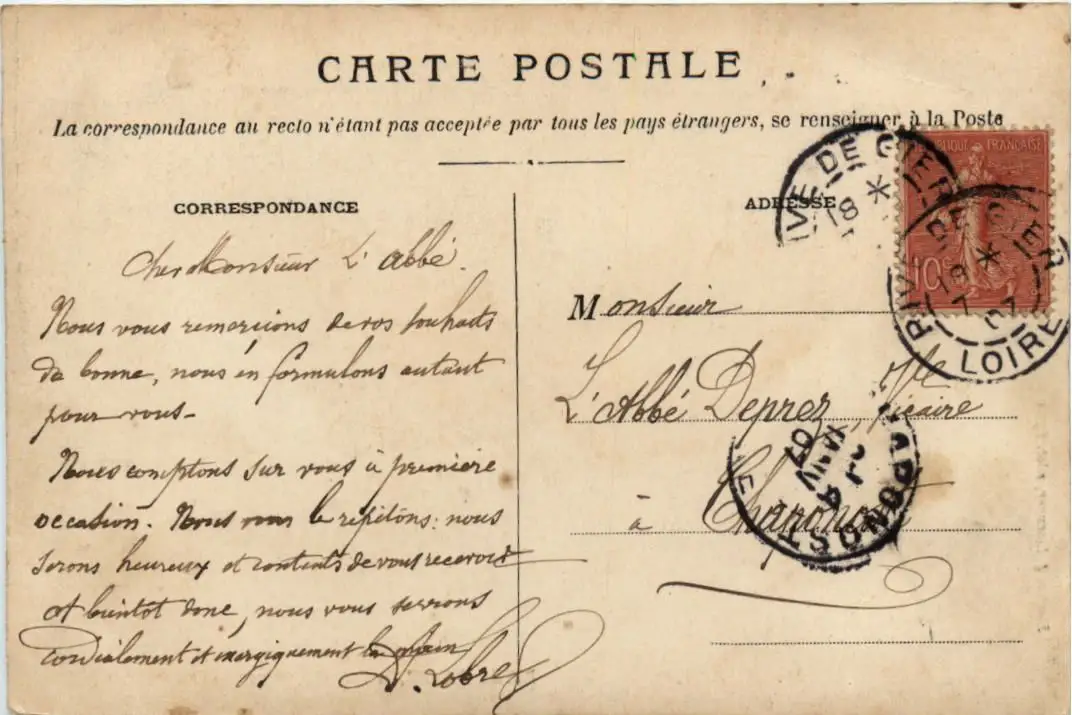 CARTE POSTALE
La correspondance au recto n'étant pas acceptée par tous les pays étrangers, se renseigner à la Poste
CORRESPONDANCE
ADRESSE
Cher Monsieur L'abbé.
Nous vous remercions de vos souhaits
de bonne, nous en formulons autant
pour vous-
Nous comptons sur vous à première
occasion. Nous vous le répétons: nous
serons heureux et contents de vous recevoir
A bientôt donc, nous vous serrons
cordialement et energiquement la main
Monsieur
L'Abbé Deprez, Vicaire
à Chaponost
REPUBLIQUE FRANÇAISE
10c
RIVE DE GIER
18
RIVE DE GIER
18
07
LOIRE
CHAPONOST
07